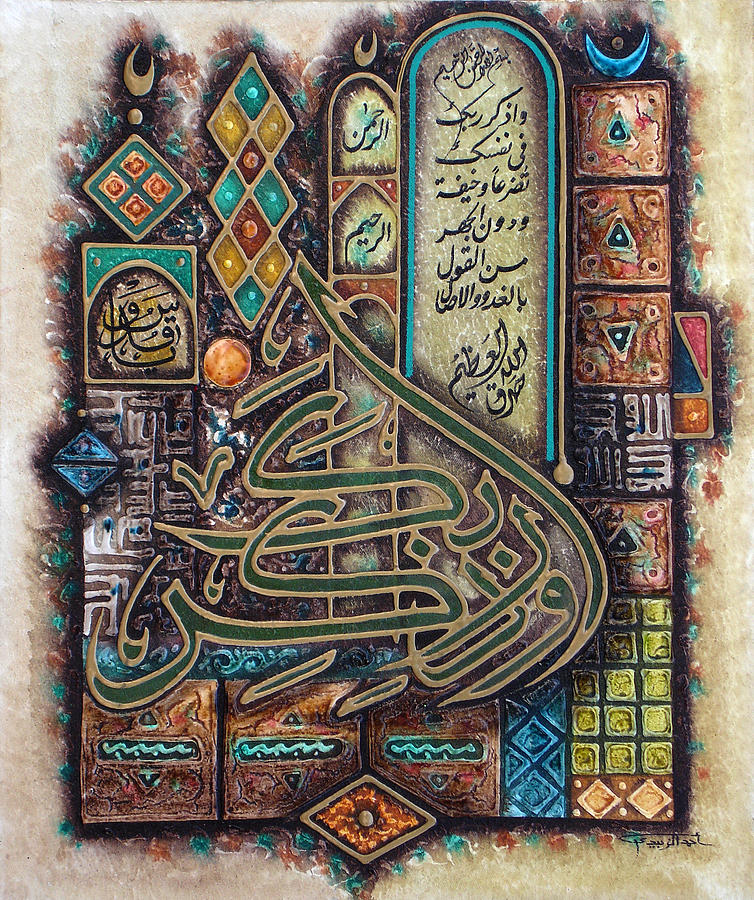 بسم الله الرحمن الرحيم
واذكر ربك
في نفسك
تضرعاً وخيفة
ودون الجهر
من القول
بالغدو والاصال
صدق الله العظيم
الرحمن
الرحيم
يا قدوس
واذكر ربك